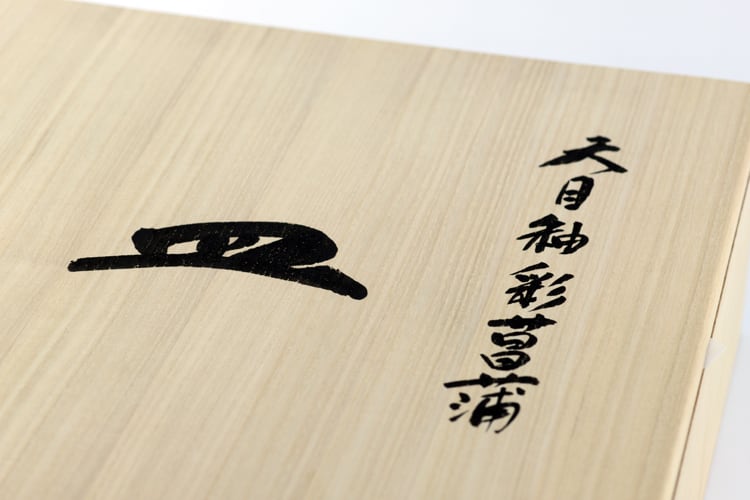 天目釉彩菖蒲
皿